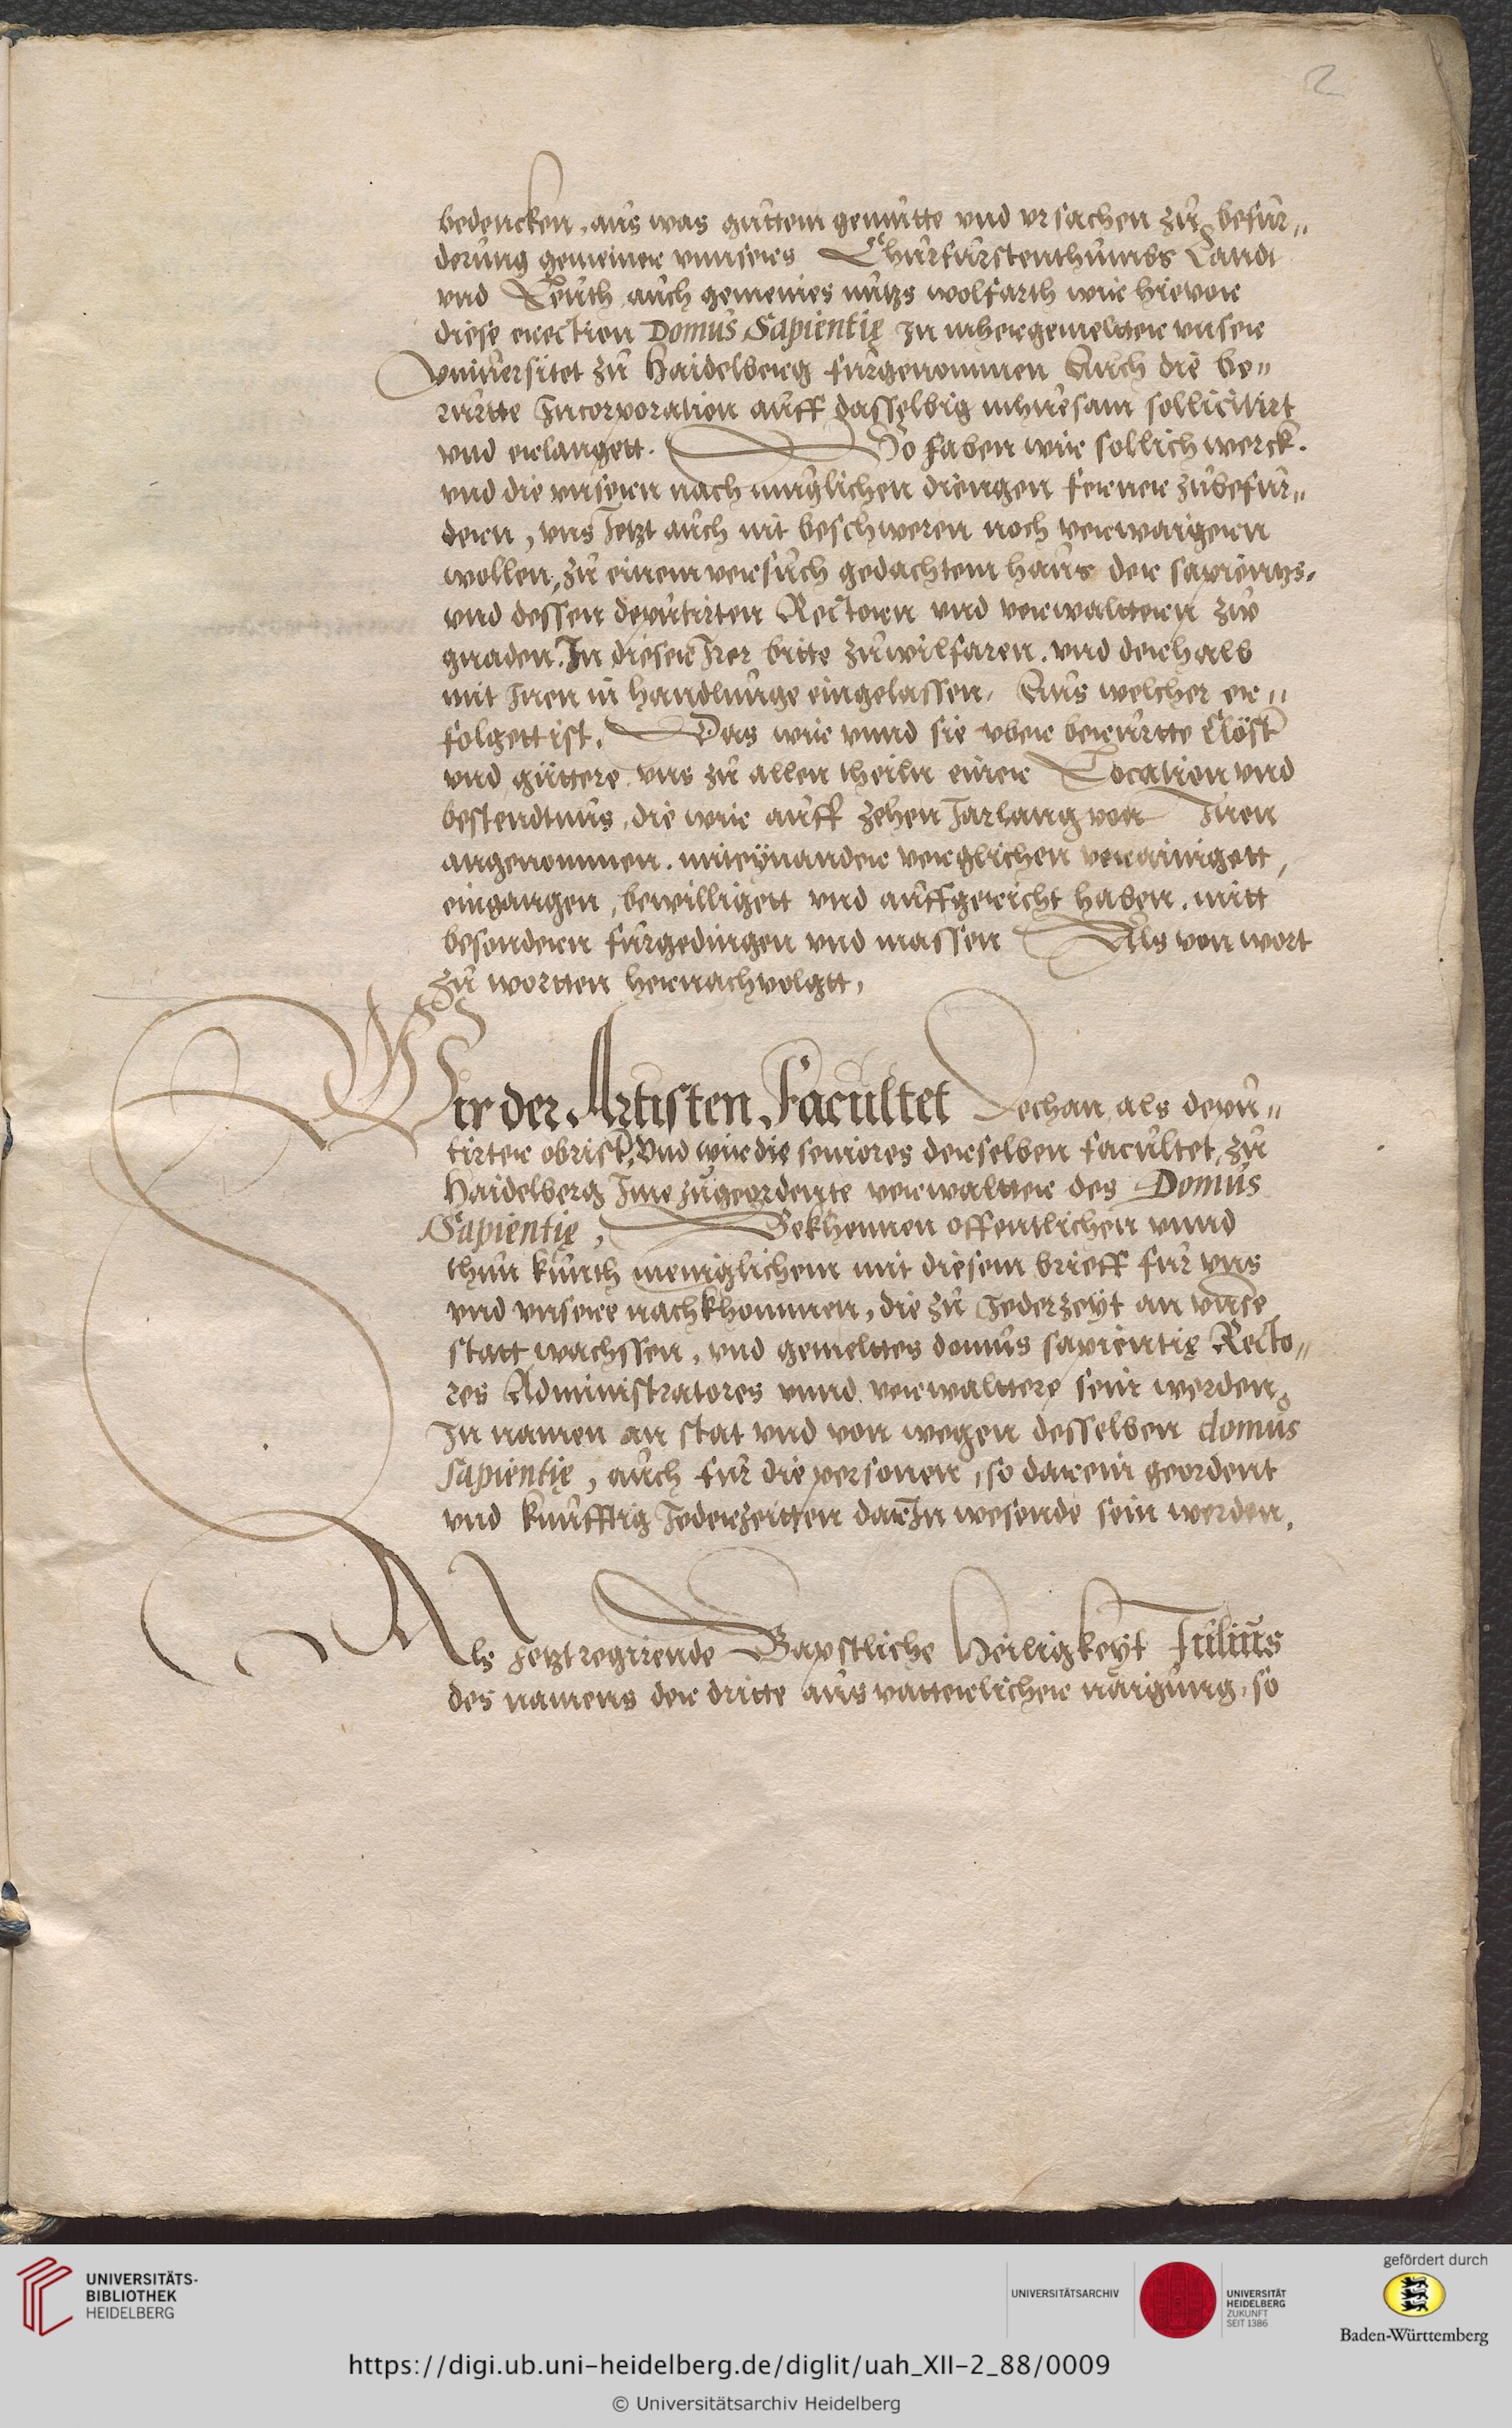 2
bedencken, aus was guttem gemutte vnd vrsachen zu befur„
derung gemeiner vnnsers Churfurstenthumbs Landt
vnd Leuth auch gemeines nutzs wolfarth wir hieuor
diese erection Domus Sapientię In inhergemelter vnser
vniuersitet zu Haidelberg furgenommen Auch die be„
rurtte Incorporation auff dasselbig muhesam sollicitirt
vnd erlangett. So haben wir sollich werck.
vnd die vnsern nach muglichen diengen ferner zubefur„
dern, vns Jetzt auch nit beschweren noch verwaigern
wollen, zu einem versuch gedachtem haus der sapientzs.
vnd dessen deputirten Rectorn vnd verwalttern zw
gnaden. In dieser Irer bitte zuwilfaren. vnd derhalb
mit Inen in handlunge eingelassen, Aus welcher er„
folgett ist, Das wir vnnd sie vber berurtte Clöst
vnd güttere vns zu allen theiln einer Location vnd
bestendtnus, die wir auff zehen Jarlang von Inen
angenommen. miteynander verglichen verainigett,
eingangen, bewilligett vnd auffgericht haben. mitt
besondern furgedingen vnd massen Als von wort
zu wortten hernachvolgtt,
Wir der Artisten Facultet Dechan, als depu„
tirter obrist, Vnd wir die seniores derselben facultet, zu
Haidelberg Ime zugeordente verwaltter des Domus
Sapientię, Bekhennen offentlichen vnnd
thun kunth meniglichem mit diesem brieff fur vns
vnd vnsere nachkhommen, die zu Jederzeyt an vnse
statt wachssen, vnd gemelttes domus sapientię Recto„
res Administratores vnnd verwalttere sein werden,
In namen an stat vnd von wegen desselben domus
sapientię, auch fur die personen, so darein geordent
vnd kunfftig Jederzeitten darIn wesende sein werden.
Als Jetzt regirende Bapstliche Heiligkeyt Julius
des namens der dritte aus vatterlicher naigung, so
UNIVERSITÄTS-
BIBLIOTHEK
HEIDELBERG
UNIVERSITÄTSARCHIV
UNIVERSITÄT
HEIDELBERG
ZUKUNFT
SEIT 1386
gefördert durch
Baden-Württemberg
https://digi.ub.uni-heidelberg.de/diglit/uah_XII-2_88/0009
© Universitätsarchiv Heidelberg